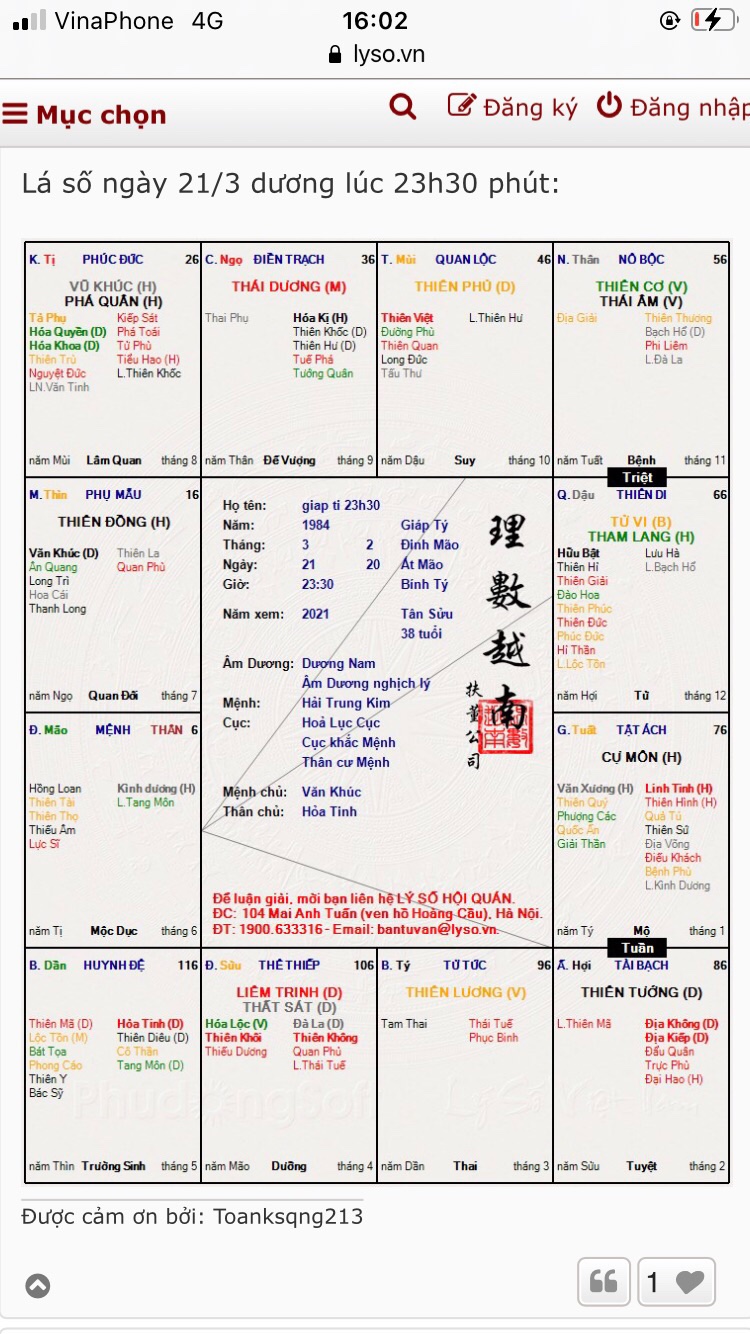 VinaPhone 4G 16:02
lyso.vn
Mục chọn Đăng ký Đăng nhập
Lá số ngày 21/3 dương lúc 23h30 phút:
K. Tị PHÚC ĐỨC 26
VŨ KHÚC (H)
PHÁ QUÂN (H)
Tả Phụ Kiếp Sát
Hóa Quyền (D) Phá Toái
Hóa Khoa (D) Tử Phù
Thiên Trù Tiểu Hao (H)
Nguyệt Đức L.Thiên Khốc
LN.Văn Tinh
năm Mùi Lâm Quan tháng 8
C. Ngọ ĐIỀN TRẠCH 36
THÁI DƯƠNG (M)
Thai Phụ Hóa Kị (H)
Thiên Khốc (D)
Thiên Hư (D)
Tuế Phá
Tướng Quân
năm Thân Đế Vượng tháng 9
T. Mùi QUAN LỘC 46
THIÊN PHỦ (D)
Thiên Việt L.Thiên Hư
Đường Phù
Thiên Quan
Long Đức
Tấu Thư
năm Dậu Suy tháng 10
N. Thân NÔ BỘC 56
THIÊN CƠ (V)
THÁI ÂM (V)
Địa Giải Thiên Thương
Bạch Hổ (D)
Phi Liêm
L.Đà La
năm Tuất Bệnh tháng 11
Triệt
M. Thìn PHỤ MẪU 16
THIÊN ĐỒNG (H)
Văn Khúc (D) Thiên La
Ân Quang Quan Phủ
Long Trì
Hoa Cái
Thanh Long
năm Ngọ Quan Đới tháng 7
Họ tên: giap ti 23h30
Năm: 1984 Giáp Tý
Tháng: 3 2 Đinh Mão
Ngày: 21 20 Ất Mão
Giờ: 23:30 Bính Tý
Năm xem: 2021 Tân Sửu
38 tuổi
Âm Dương: Dương Nam
Âm Dương nghịch lý
Mệnh: Hải Trung Kim
Cục: Hoả Lục Cục
Cục khắc Mệnh
Thân cư Mệnh
Mệnh chủ: Văn Khúc
Thân chủ: Hỏa Tinh
理數越南
扶董公司
Để luận giải, mời bạn liên hệ LÝ SỐ HỘI QUÁN.
ĐC: 104 Mai Anh Tuấn (ven hồ Hoàng Cầu), Hà Nội.
ĐT: 1900.633316 - Email: bantuvan@lyso.vn.
Q. Dậu THIÊN DI 66
TỬ VI (B)
THAM LANG (H)
Hữu Bật Lưu Hà
Thiên Hỉ L.Bạch Hổ
Thiên Giải
Đào Hoa
Thiên Phúc
Thiên Đức
Phúc Đức
Hỉ Thần
L.Lộc Tồn
năm Hợi Tử tháng 12
Đ. Mão MỆNH THÂN 6
Hồng Loan Kình dương (H)
Thiên Tài L.Tang Môn
Thiên Thọ
Thiếu Âm
Lực Sĩ
năm Tị Mộc Dục tháng 6
G. Tuất TẬT ÁCH 76
CỰ MÔN (H)
Văn Xương (H) Linh Tinh (H)
Thiên Quý Thiên Hình (H)
Phượng Các Quả Tú
Quốc Ấn Thiên Sứ
Giải Thần Địa Võng
Điếu Khách
Bệnh Phù
L.Kình Dương
năm Tý Mộ tháng 1
Tuần
B. Dần HUYNH ĐỆ 116
Thiên Mã (D) Hỏa Tinh (D)
Lộc Tồn (M) Thiên Diêu (D)
Bát Tọa Cô Thần
Phong Cáo Tang Môn (D)
Thiên Y
Bác Sỹ
năm Thìn Trường Sinh tháng 5
Đ. Sửu THÊ THIẾP 106
LIÊM TRINH (D)
THẤT SÁT (D)
Hóa Lộc (V) Đà La (D)
Thiên Khôi Thiên Không
Thiếu Dương Quan Phù
L.Thái Tuế
năm Mão Dưỡng tháng 4
B. Tý TỬ TỨC 96
THIÊN LƯƠNG (V)
Tam Thai Thái Tuế
Phục Binh
năm Dần Thai tháng 3
Ấ. Hợi TÀI BẠCH 86
THIÊN TƯỚNG (D)
L.Thiên Mã Địa Không (D)
Địa Kiếp (D)
Đẩu Quân
Trực Phù
Đại Hao (H)
năm Sửu Tuyệt tháng 2
Được cảm ơn bởi: Toanksqng213
1